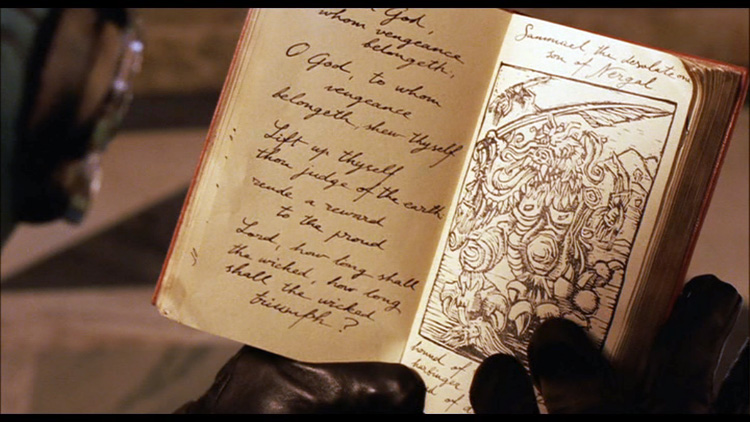 God,
whom vengeance
belongeth,
O God, to whom
vengeance
belongeth, shew thyself
Lift up thyself
thou judge of the earth
rende a reward
to the proud
Lord, how long shall
the wicked, how long
shall the wicked
triumph?
Sammael, the desolation
son of Nergal
hound of
harbinger
of